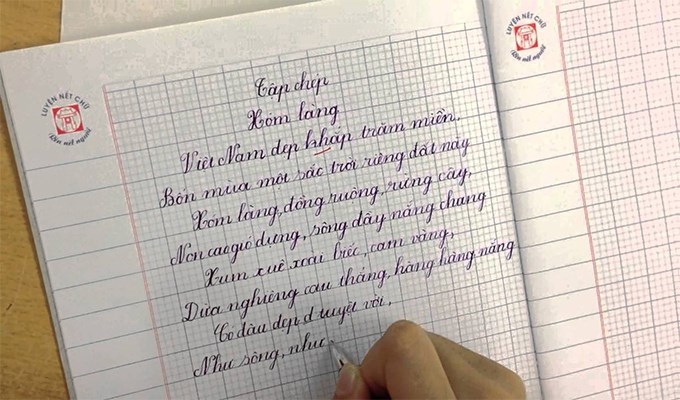 LUYỆN NÉT CHỮ
Rèn nết người
Tập chép
Xóm làng
Việt Nam đẹp khắp trăm miền,
Bốn mùa một sắc trời riêng đất này
Xóm làng, đồng ruộng, rừng cây,
Non cao gió dựng, sông đầy nắng chang
Xum xuê xoài biếc, cam vàng,
Dừa nghiêng cau thẳng, hàng hàng nắng
Có đâu đẹp đ tuyệt vời,
Như sông, như
LUYỆN NÉT CHỮ
Rèn nết người